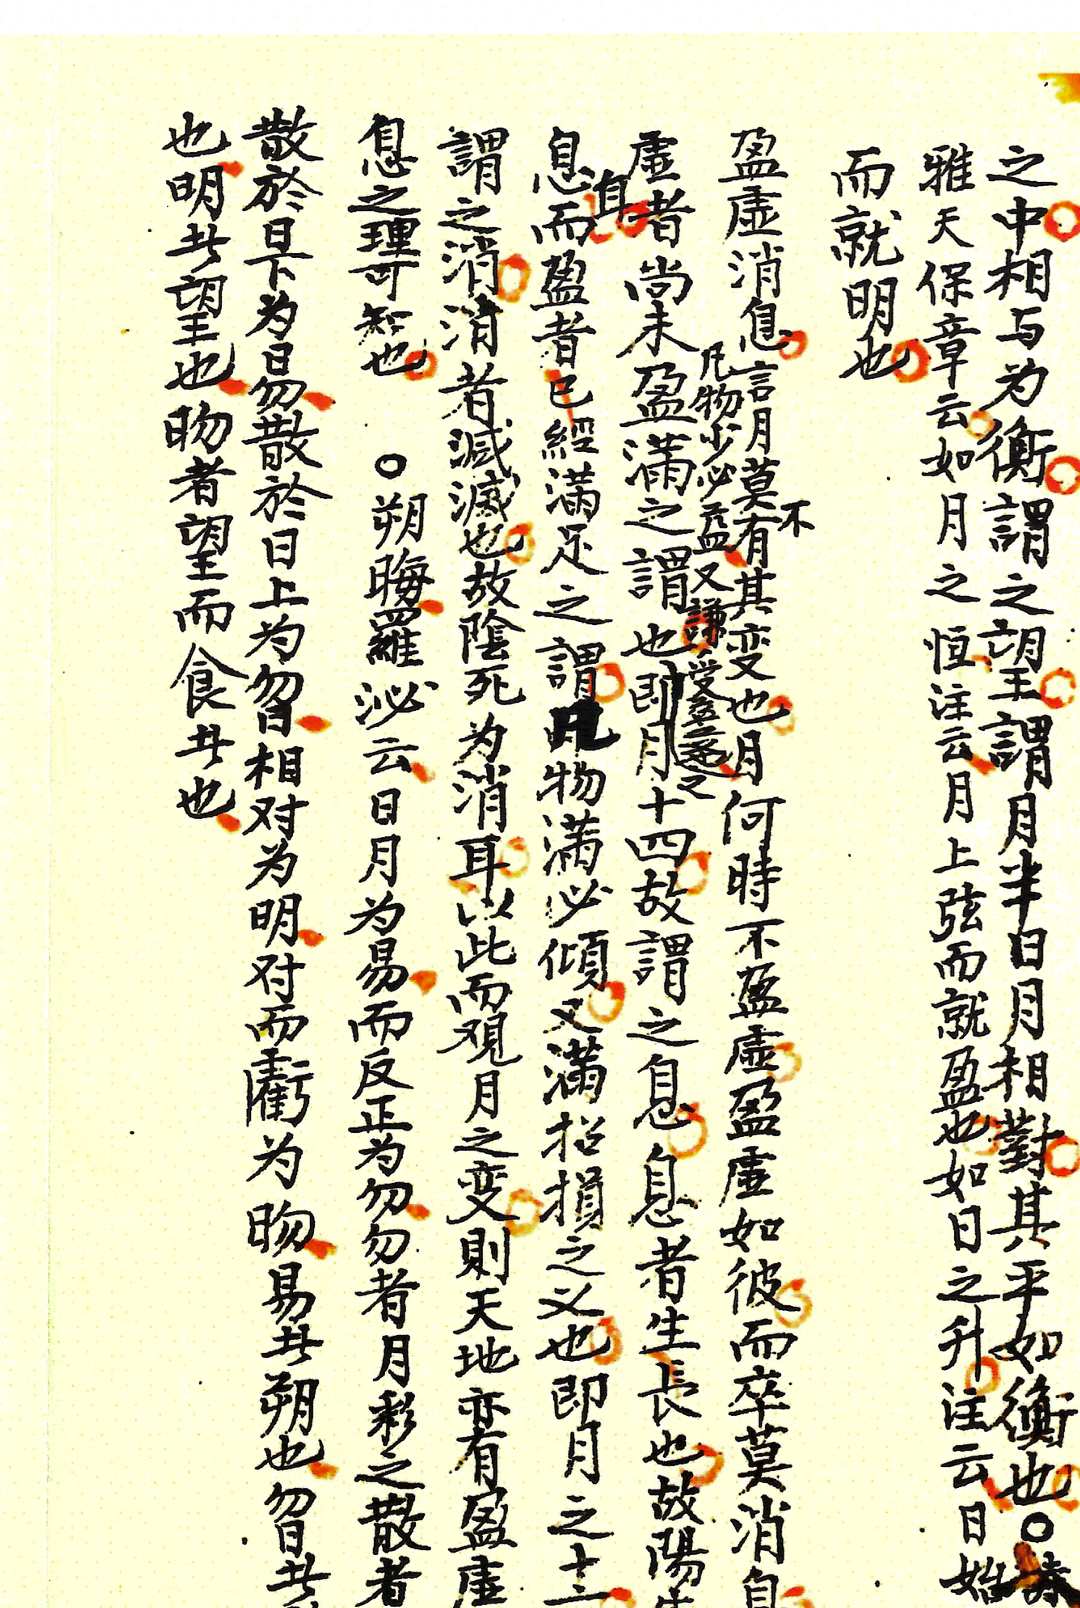 之中相与为衡謂之望謂月半日月相對其平如衡也○詩
雅天保章云如月之恒注云月上弦而就盈也如日之升注云日始
而就明也
盈虚消息言月莫不有其变也月何時不盈虚盈虚如彼而卒莫消息
凡物少必益又謙受益之
虚者尚未盈滿之謂也即月十四故謂之息息者生長也故陽生
息而盈者已經滿足之謂凡物滿必傾又滿招損之义也即月之十二
謂之消消者減滅也故陰死为消耳以此而观月之变則天地亦有盈虚
息之理可知也　○朔晦羅泌云日月为易而反正为勿勿者月彩之散者
散於日下为易勿散於日上为曶相对为明对而虧为昒易其朔也曶其
也明其望也昒者望而食其也